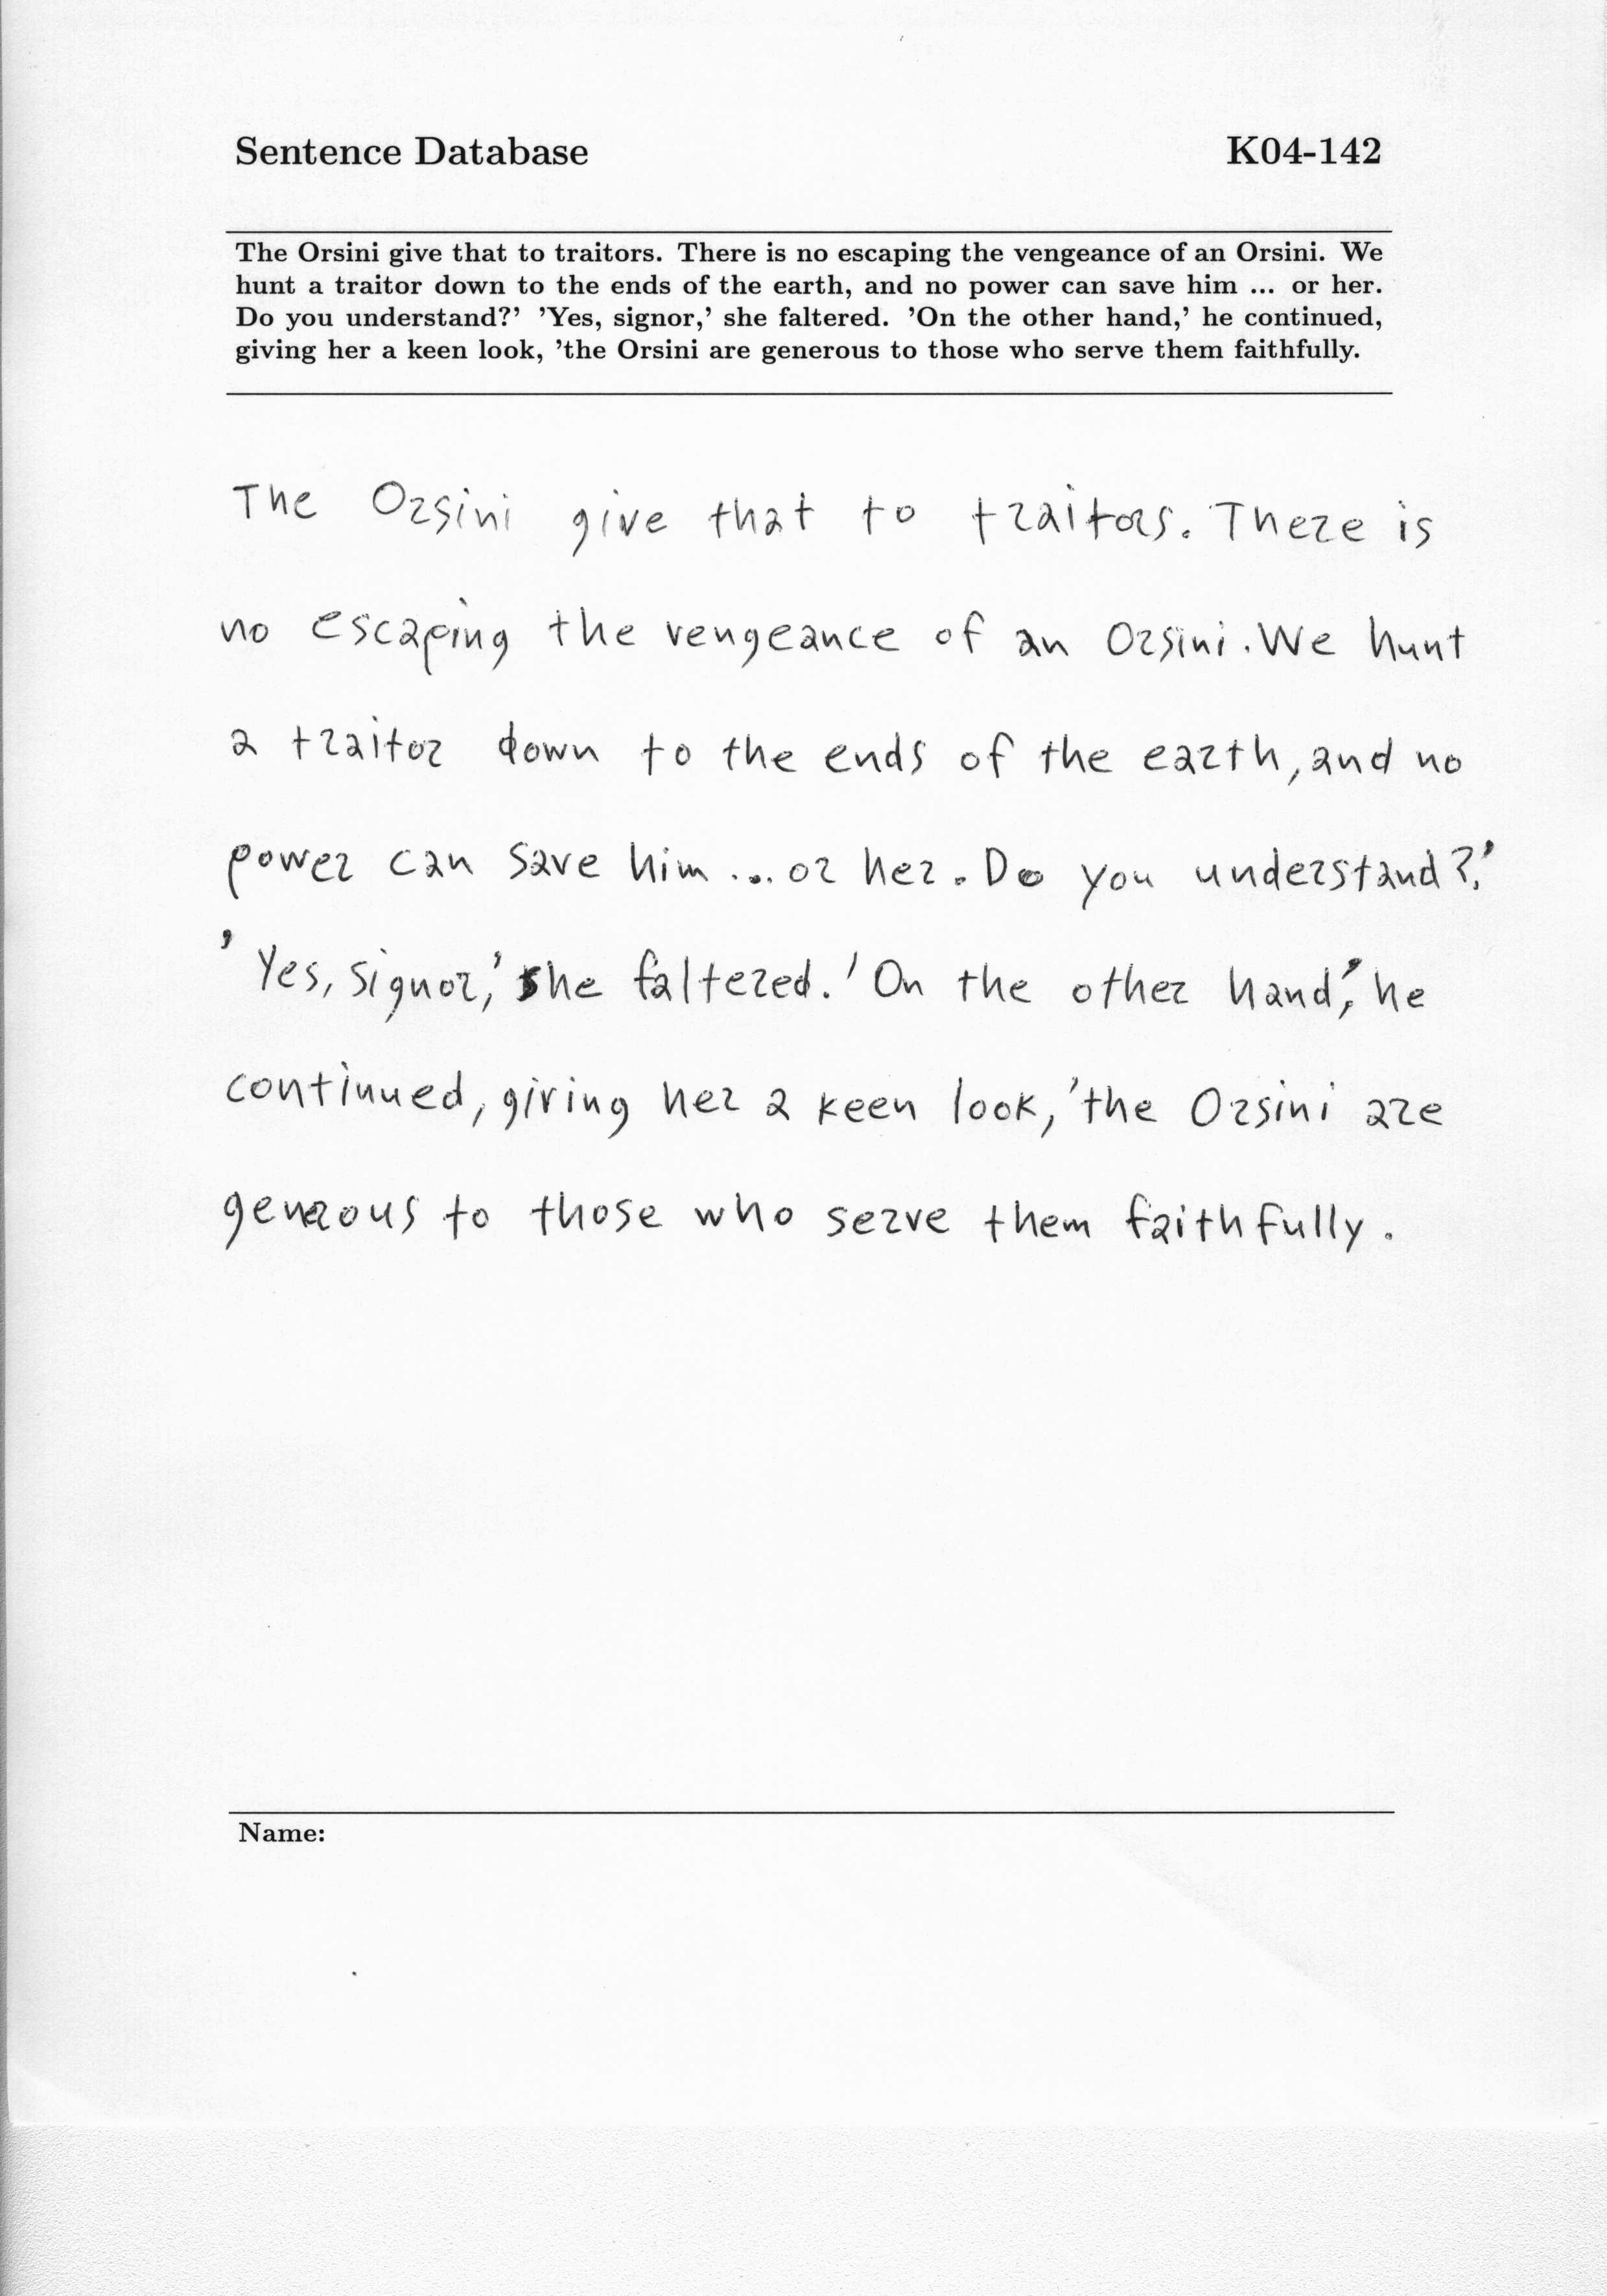 Sentence Database K04-142
The Orsini give that to traitors. There is no escaping the vengeance of an Orsini. We
hunt a traitor down to the ends of the earth, and no power can save him ... or her.
Do you understand?' 'Yes, signor,' she faltered. 'On the other hand,' he continued,
giving her a keen look, 'the Orsini are generous to those who serve them faithfully.
The Orsini give that to traitors. There is
no escaping the vengeance of an Orsini. We hunt
a traitor down to the ends of the earth, and no
power can save him ... or her. Do you understand?'
'Yes, signor,' she faltered. 'On the other hand,' he
continued, giving her a keen look, 'the Orsini are
generous to those who serve them faithfully.
Name: